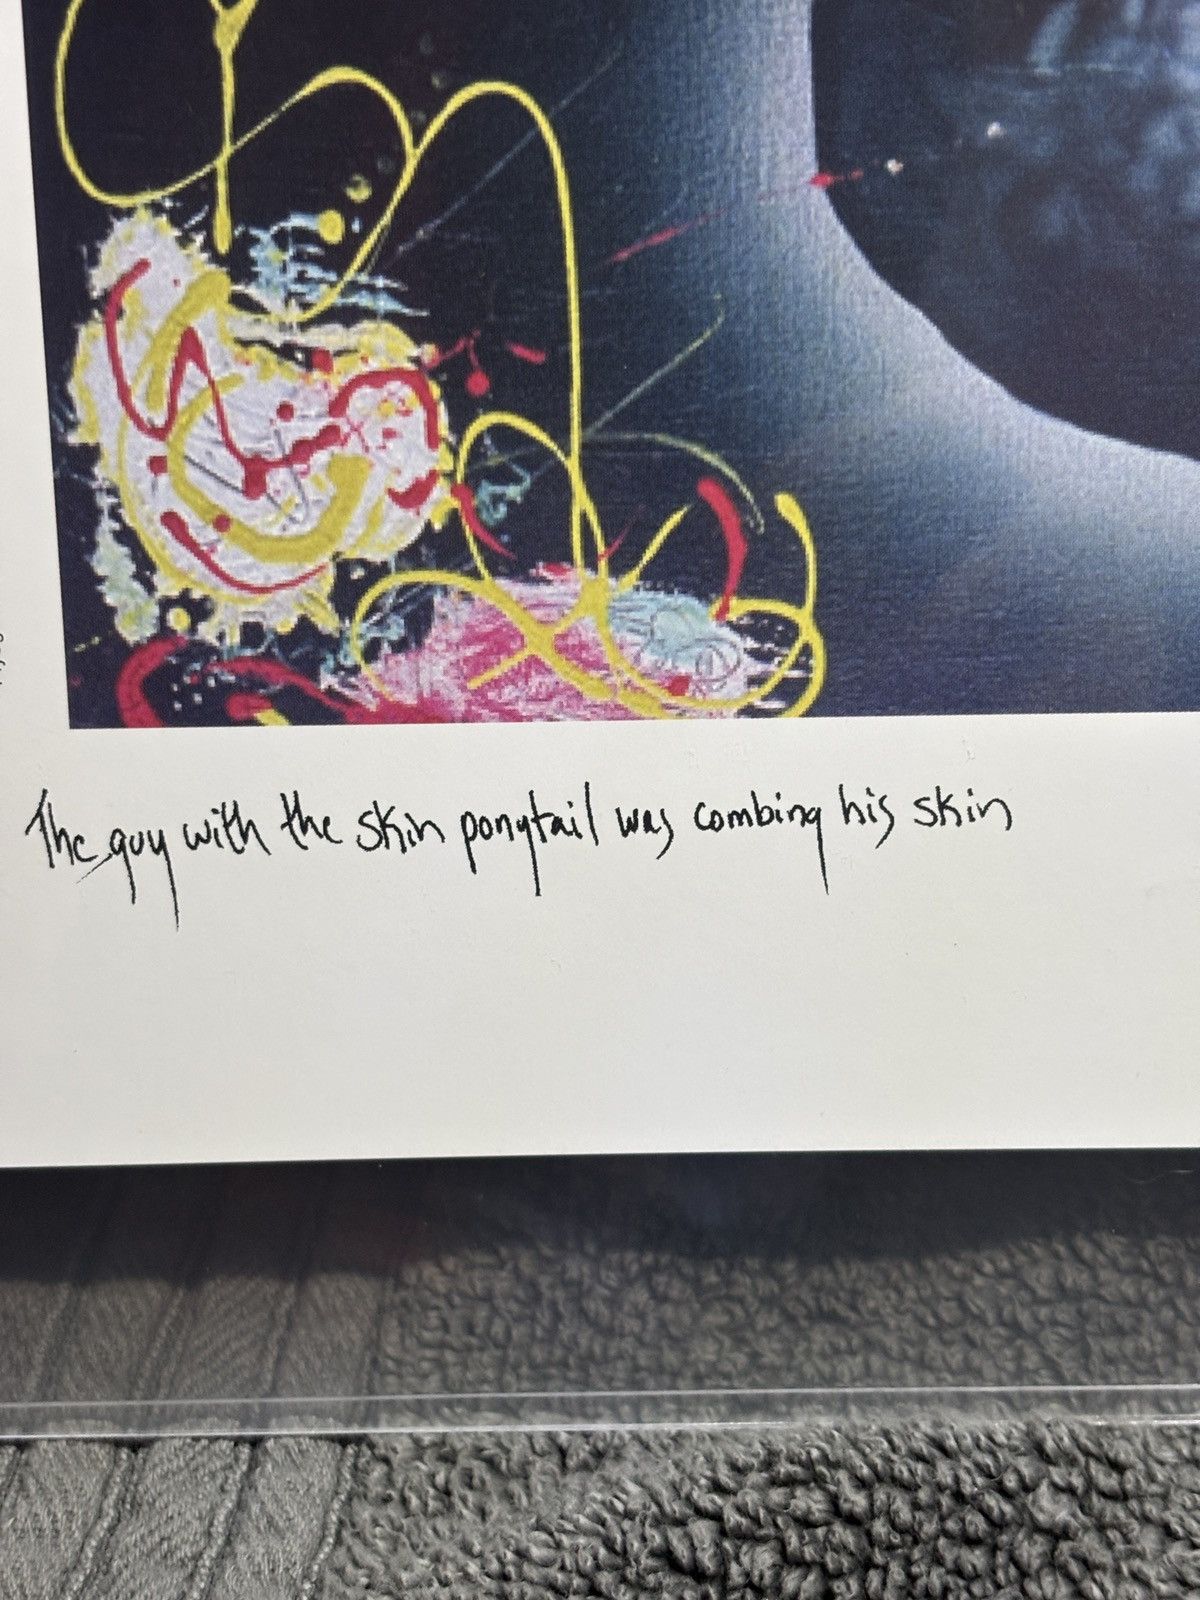 The guy with the skin ponytail was combing his skin